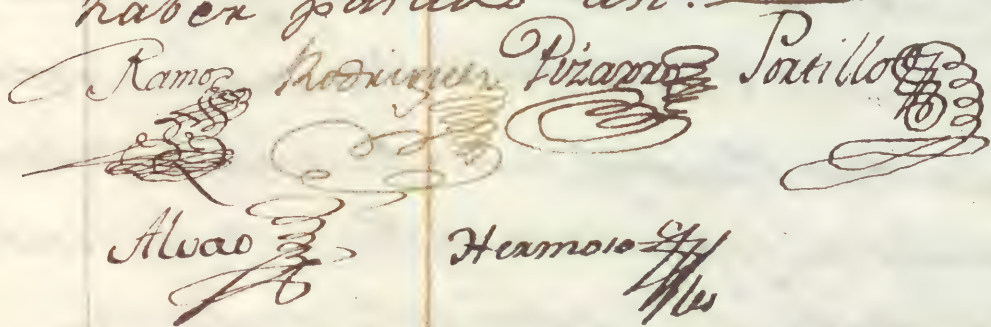 haber pasado asi.
Ramos Rodriguez Pizarro Portillo
Alvaro Hermoso